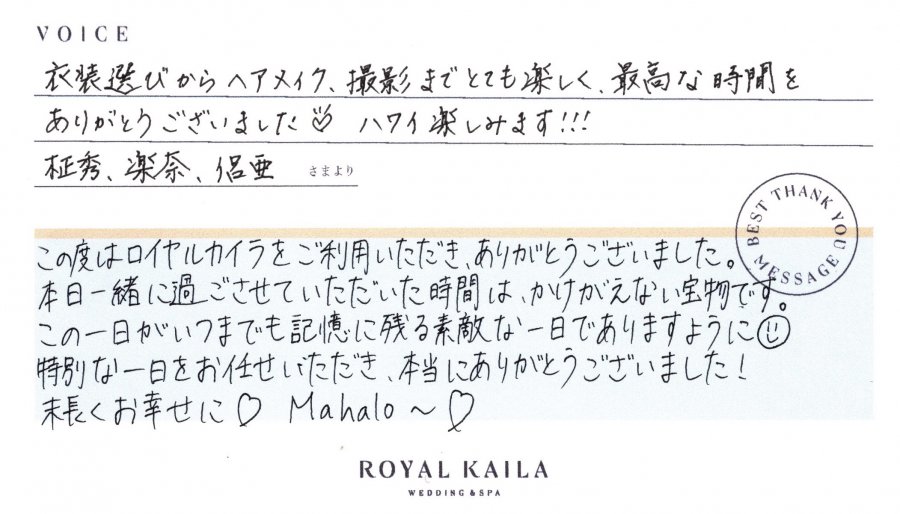 VOICE
衣装選びからヘアメイク、撮影までとても楽しく、最高な時間を
ありがとうございました♡ ハワイ楽しみます!!!
柾秀、楽奈、侶亜 さまより
BEST THANK YOU MESSAGE
この度はロイヤルカイラをご利用いただき、ありがとうございました。
本日一緒に過ごさせていただいた時間は、かけがえない宝物です。
この一日がいつまでも記憶に残る素敵な一日でありますように☺
特別な一日をお任せいただき、本当にありがとうございました!
末長くお幸せに♡ Mahalo～♡
ROYAL KAILA
WEDDING & SPA